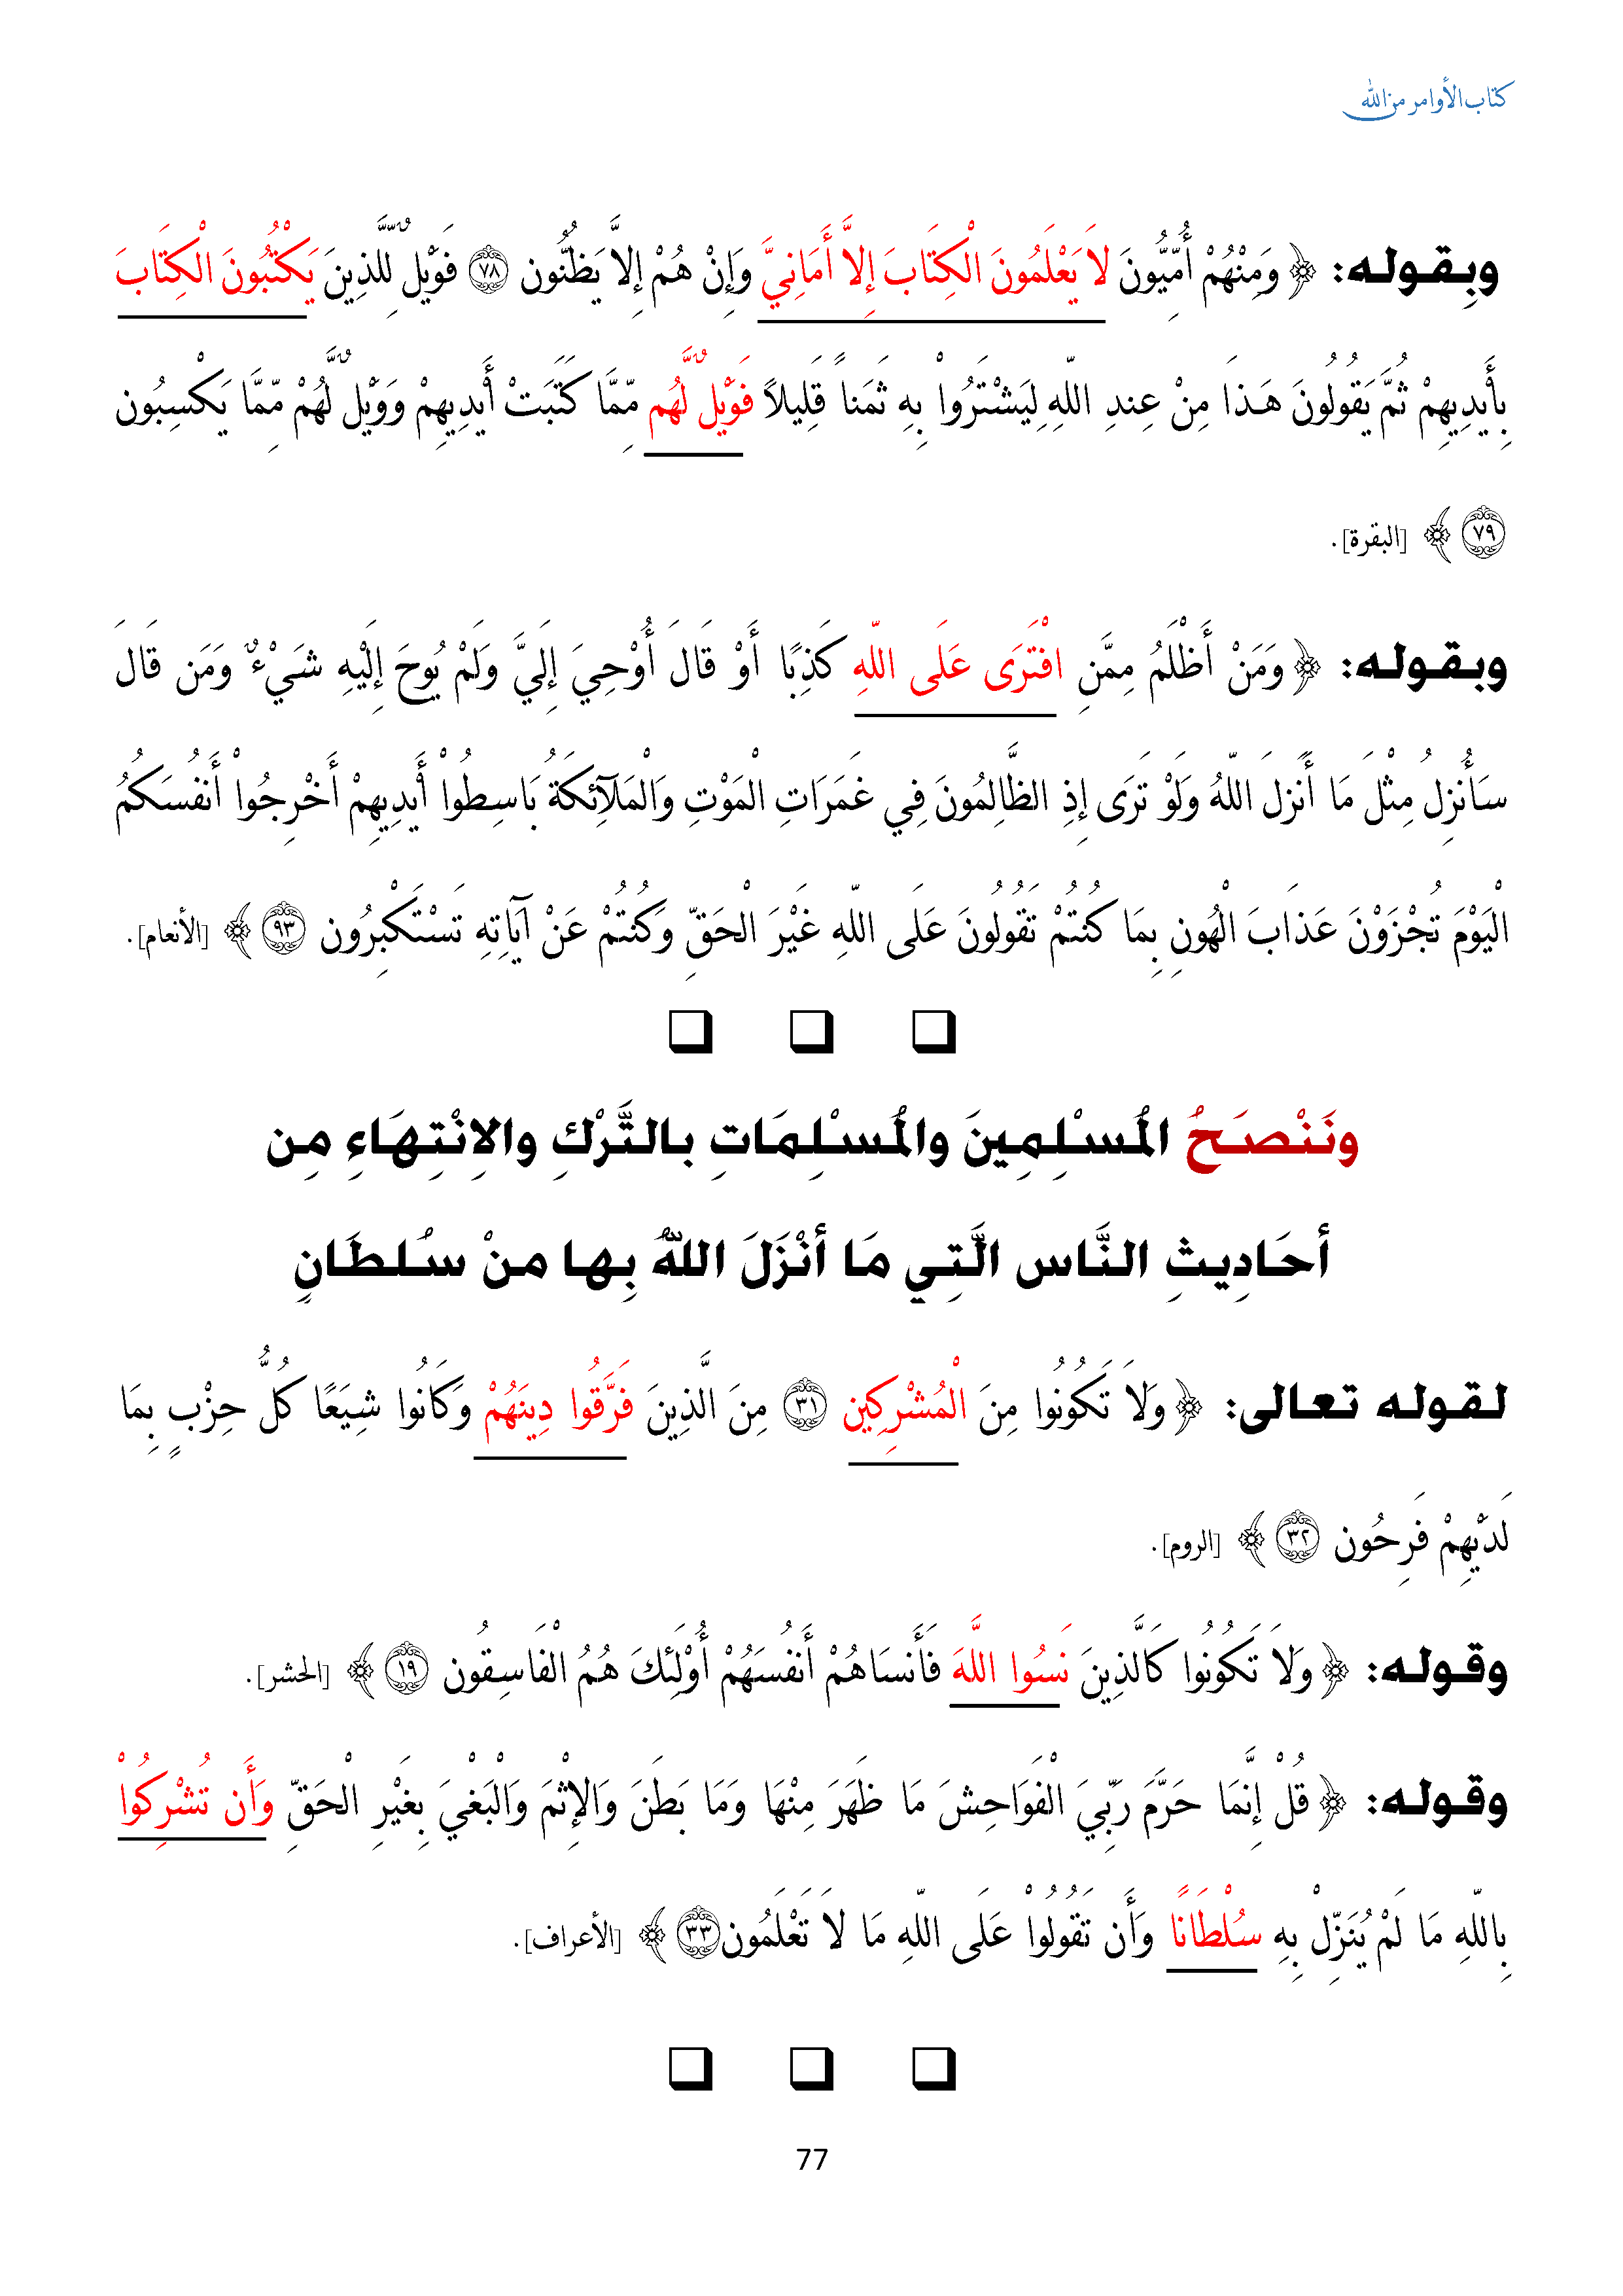 كتاب الأوامر من الله
وبِقوله: ﴿ وَمِنْهُمْ أُمِّيُّونَ لاَ يَعْلَمُونَ الْكِتَابَ إِلاَّ أَمَانِيَّ وَإِنْ هُمْ إِلاَّ يَظُنُّون ﴿٧٨﴾ فَوَيْلٌ لِّلَّذِينَ يَكْتُبُونَ الْكِتَابَ
بِأَيْدِيهِمْ ثُمَّ يَقُولُونَ هَـذَا مِنْ عِندِ اللّهِ لِيَشْتَرُواْ بِهِ ثَمَناً قَلِيلاً فَوَيْلٌ لَّهُم مِّمَّا كَتَبَتْ أَيْدِيهِمْ وَوَيْلٌ لَّهُمْ مِّمَّا يَكْسِبُون
﴿٧٩﴾ ﴾ [البقرة].
وبقوله: ﴿ وَمَنْ أَظْلَمُ مِمَّنِ افْتَرَى عَلَى اللّهِ كَذِبًا أَوْ قَالَ أُوْحِيَ إِلَيَّ وَلَمْ يُوحَ إِلَيْهِ شَيْءٌ وَمَن قَالَ
سَأُنزِلُ مِثْلَ مَا أَنَزلَ اللّهُ وَلَوْ تَرَى إِذِ الظَّالِمُونَ فِي غَمَرَاتِ الْمَوْتِ وَالْمَلآئِكَةُ بَاسِطُواْ أَيْدِيهِمْ أَخْرِجُواْ أَنفُسَكُمُ
الْيَوْمَ تُجْزَوْنَ عَذَابَ الْهُونِ بِمَا كُنتُمْ تَقُولُونَ عَلَى اللّهِ غَيْرَ الْحَقِّ وَكُنتُمْ عَنْ آيَاتِهِ تَسْتَكْبِرُون ﴿٩٣﴾ ﴾ [الأنعام].
ونَنْصَحُ المُسْلِمِينَ والمُسْلِمَاتِ بالتَّرْكِ والاِنْتِهَاءِ مِن
أحَادِيثِ النَّاس الَّتِي مَا أنْزَلَ اللهُ بِها منْ سُلطَانٍ
لقوله تعالى: ﴿ وَلاَ تَكُونُوا مِنَ الْمُشْرِكِين ﴿٣١﴾ مِنَ الَّذِينَ فَرَّقُوا دِينَهُمْ وَكَانُوا شِيَعًا كُلُّ حِزْبٍ بِمَا
لَدَيْهِمْ فَرِحُون ﴿٣٢﴾ ﴾ [الروم].
وقوله: ﴿ وَلَا تَكُونُوا كَالَّذِينَ نَسُوا اللَّهَ فَأَنسَاهُمْ أَنفُسَهُمْ أُوْلَئِكَ هُمُ الْفَاسِقُون ﴿١٩﴾ ﴾ [الحشر].
وقوله: ﴿ قُلْ إِنَّمَا حَرَّمَ رَبِّيَ الْفَوَاحِشَ مَا ظَهَرَ مِنْهَا وَمَا بَطَنَ وَالإِثْمَ وَالْبَغْيَ بِغَيْرِ الْحَقِّ وَأَن تُشْرِكُواْ
بِاللّهِ مَا لَمْ يُنَزِّلْ بِهِ سُلْطَانًا وَأَن تَقُولُواْ عَلَى اللّهِ مَا لاَ تَعْلَمُون ﴿٣٣﴾ ﴾ [الأعراف].
77